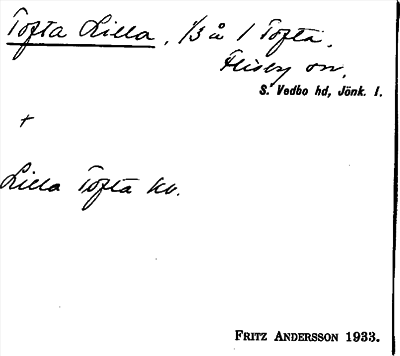 Tofta Lilla, 1/3 å 1 Tofta,
Flisby sn,
S. Vedbo hd, Jönk. l.
+
Lilla Tofta kv.
FRITZ ANDERSSON 1933.